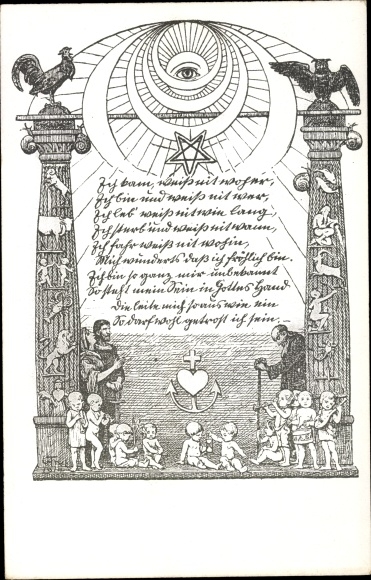 Ich kam, weiß nit woher,
Ich bin und weiß nit wer,
Ich leb weiß nit wie lang,
Ich sterb und weiß nit wann,
Ich fahr weiß nit wohin,
Mich wunderts daß ich fröhlich bin.
Ich bin so ganz mir unbekannt
So steht mein Sein in Gottes Hand.
Die leite mich so aus wie ein
So darf wohl getrost ich sein. –